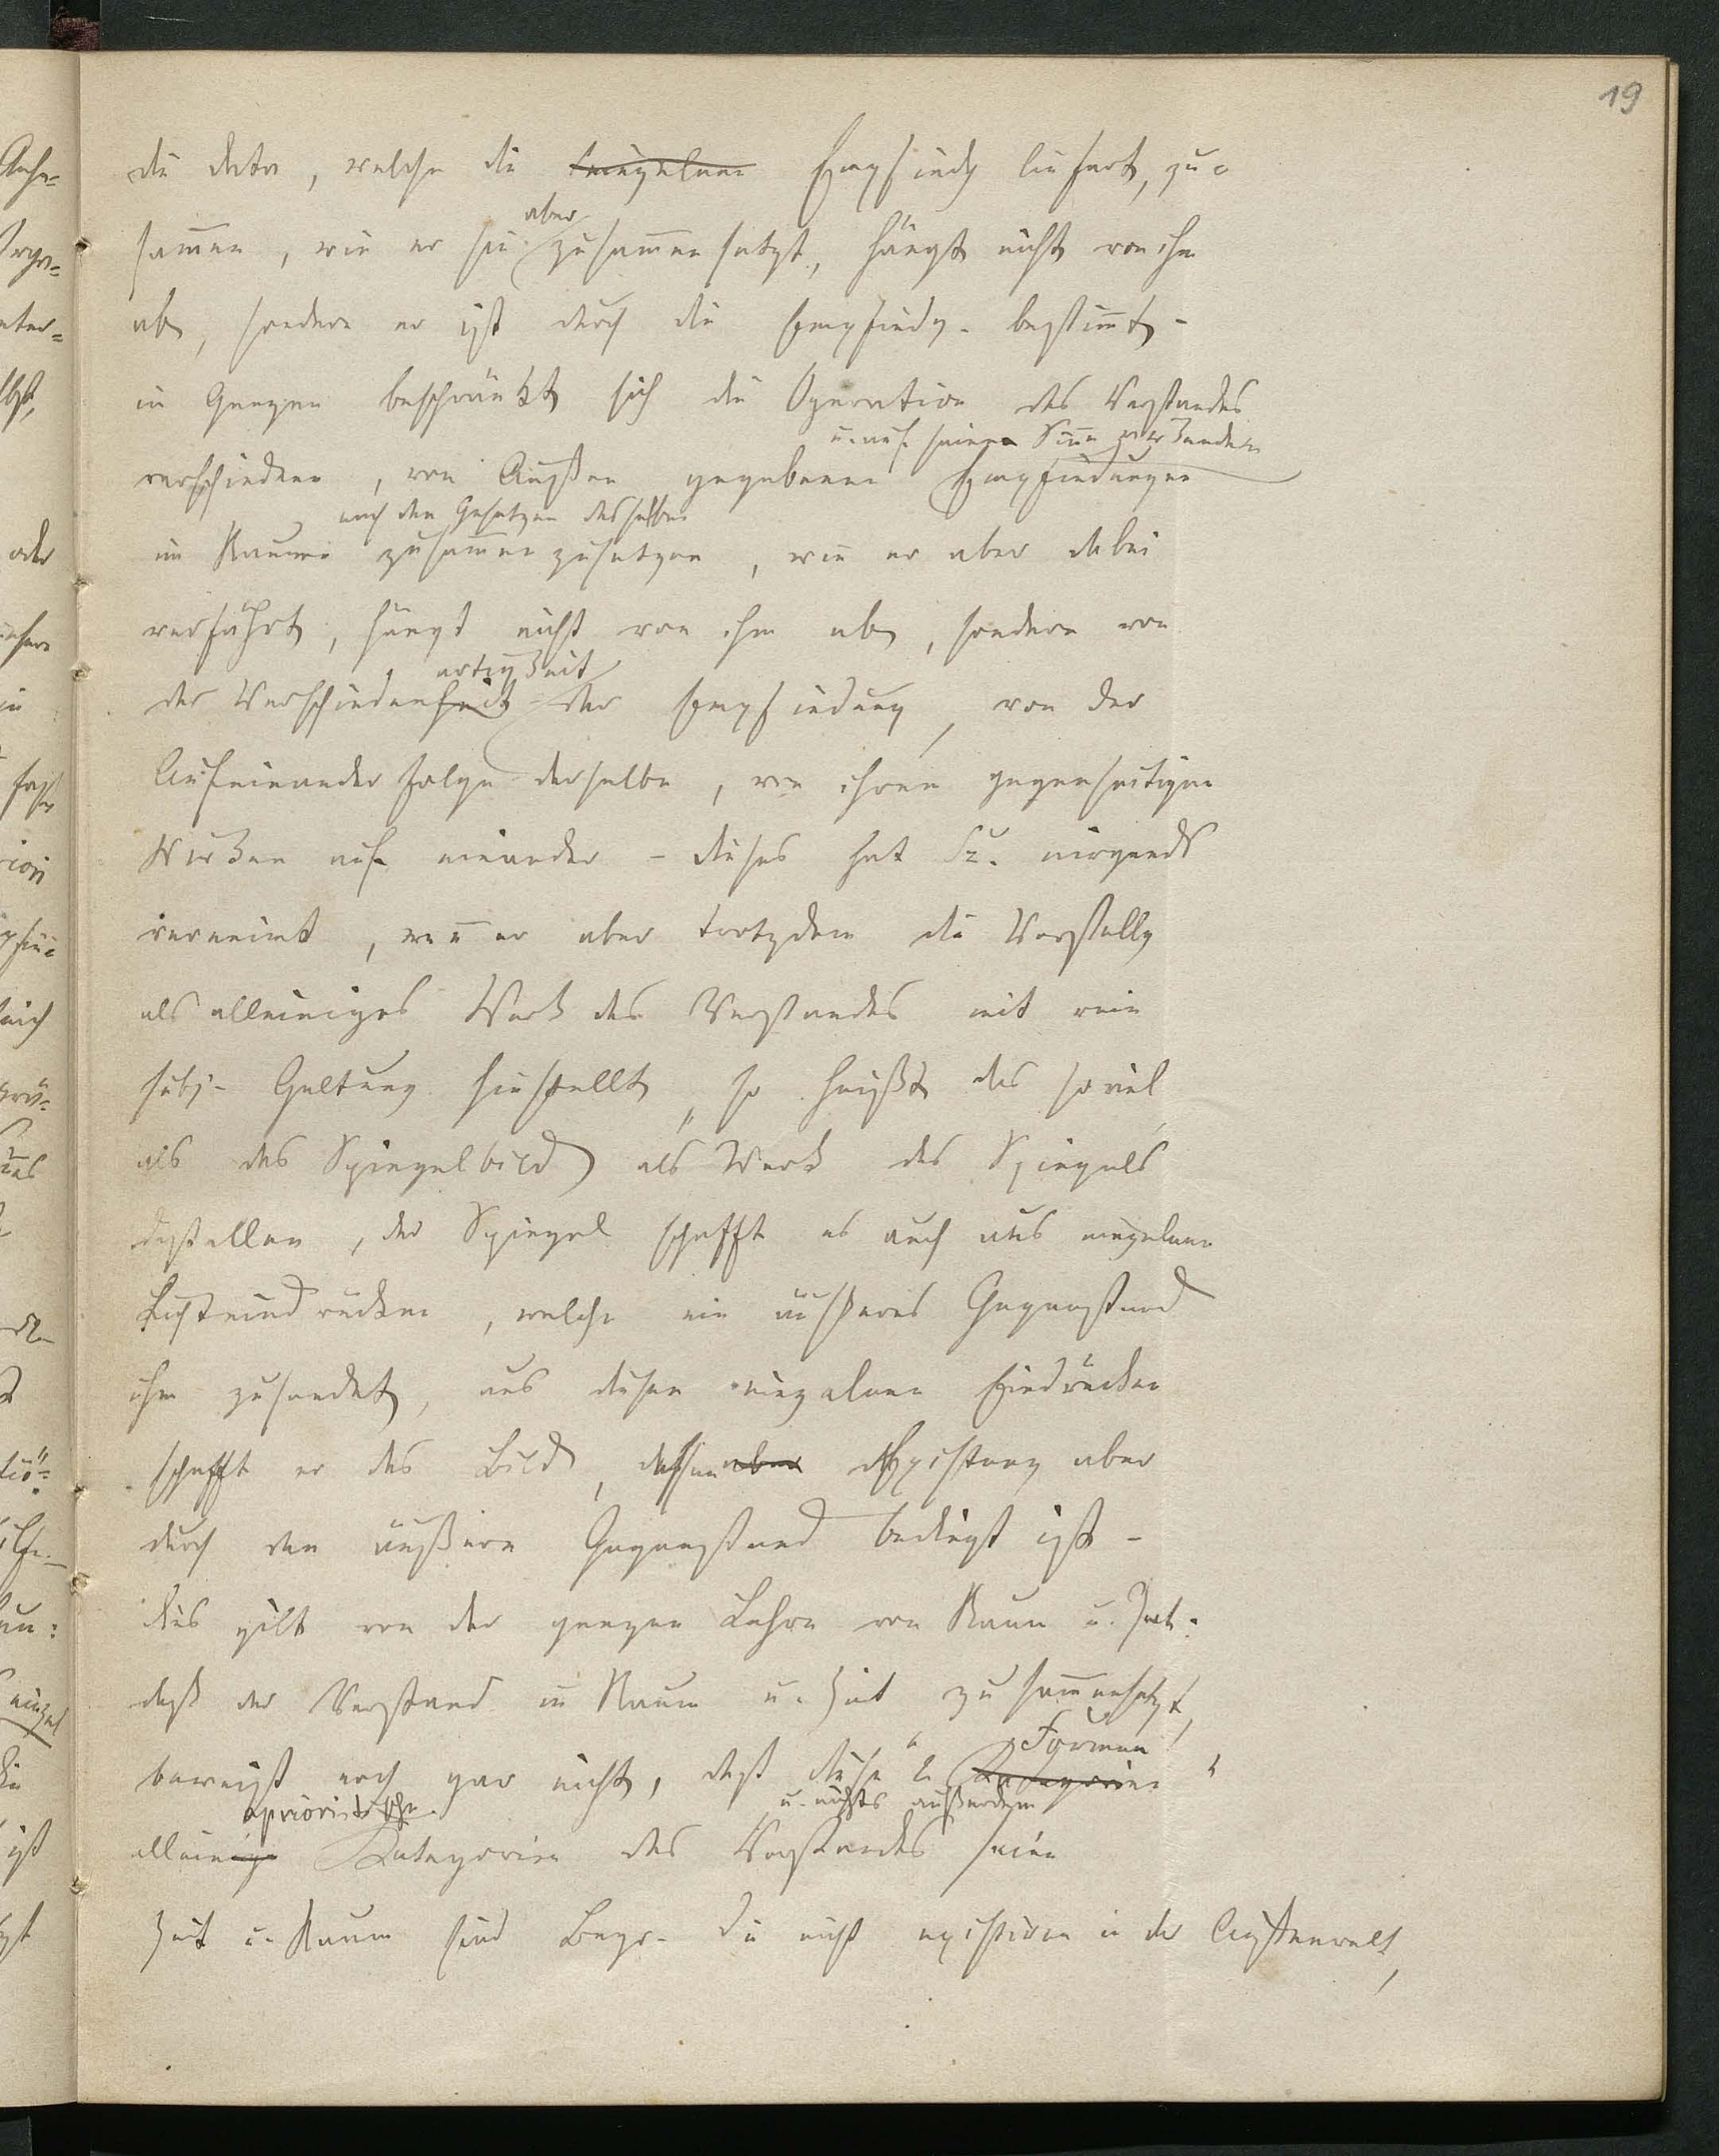 19
die Data, welche die einzelnen Empfindg liefert, zu=
sammen, wie er sie aber zusammensetzt, hängt nicht von ihm
ab, sondern er ist durch die Empfindg. bestimmt -
im Ganzen beschränkt sich die Operation des Verstandes
u. auf seine Sinne wirkenden
verschiedene, von Außen gegebenen Empfindungen
nach den Gesetzen desselben
im Raume zusammenzusetzen, wie er aber dabei
verfährt, hängt nicht von ihm ab, sondern von
artigkeit
der Verschiedenheit der Empfindung, von der
Aufeinanderfolge derselben, von ihrem gegenseitigen
Wirken auf einander - dieses hat nirgends
verneint, wenn er aber trotzdem die Vorstellg
als alleiniges Werk des Verstandes mit rein
subj- Geltung hinstellt, so heißt das soviel
als das Spiegelbild als Werk des Spiegels
dastellen, der Spiegel schafft es auch aus einzelnen
Lichteindrücken, welche ein äußerer Gegenstand
ihm zusendet, aus diesen einzelnen Eindrücken
schafft er das Bild, dessen aber Existenz aber
durch den äußeren Gegenstand bedingt ist -
dies gilt von der ganzen Lehre von Raum u. Zeit.
daß der Verstand in Raum u. Zeit zusammensetzt,
Formen
beweist noch gar nicht, daß diese 2 Kategorien
aprioristische u. nichts außerdem
alleinige Kategorien des Verstandes seien
Zeit u. Raum sind Begr. die nicht existiren in der Außenwelt,